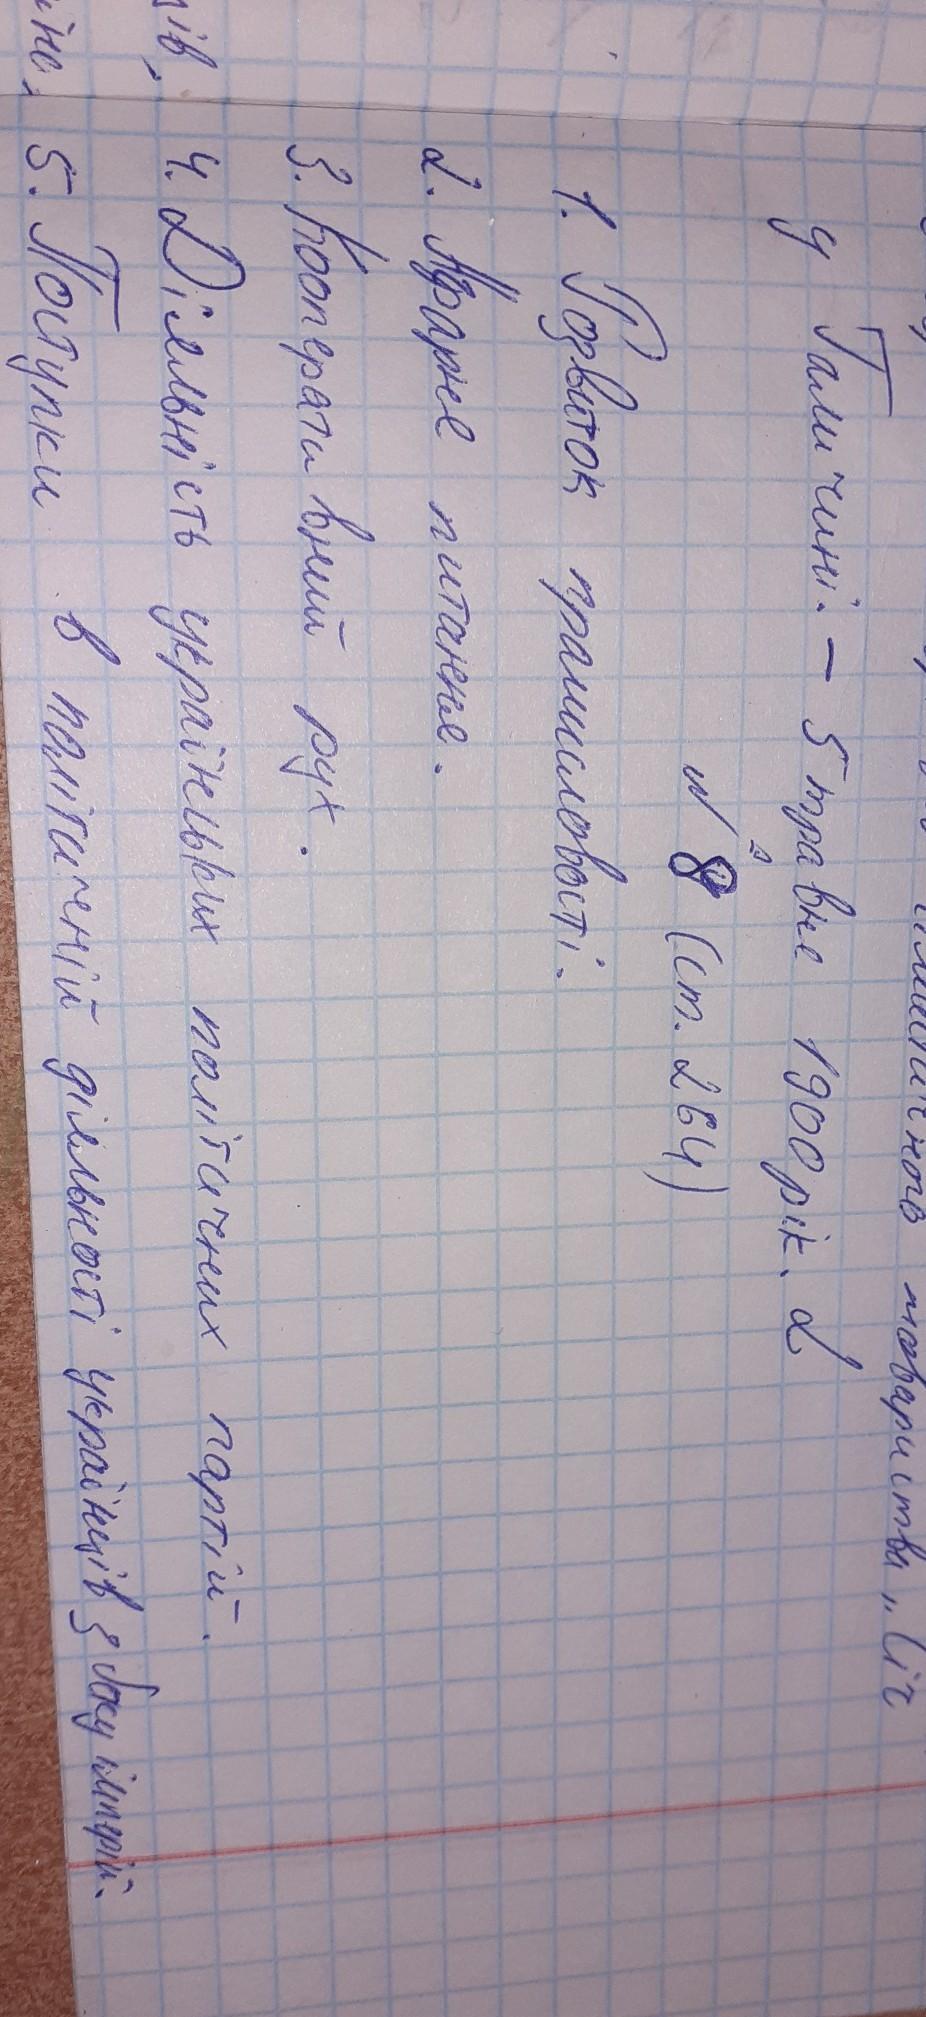 товариства „Січ
у Галичині. – 5 травня 1900 рік. 2
№ 8 (ст. 264)
1. Розвиток промисловості.
2. Аграрне питання.
3. Кооперативний рух.
ців, 4. Діяльність українських політичних партій.
5. Поступки в політичній діяльності українців з боку імперій.